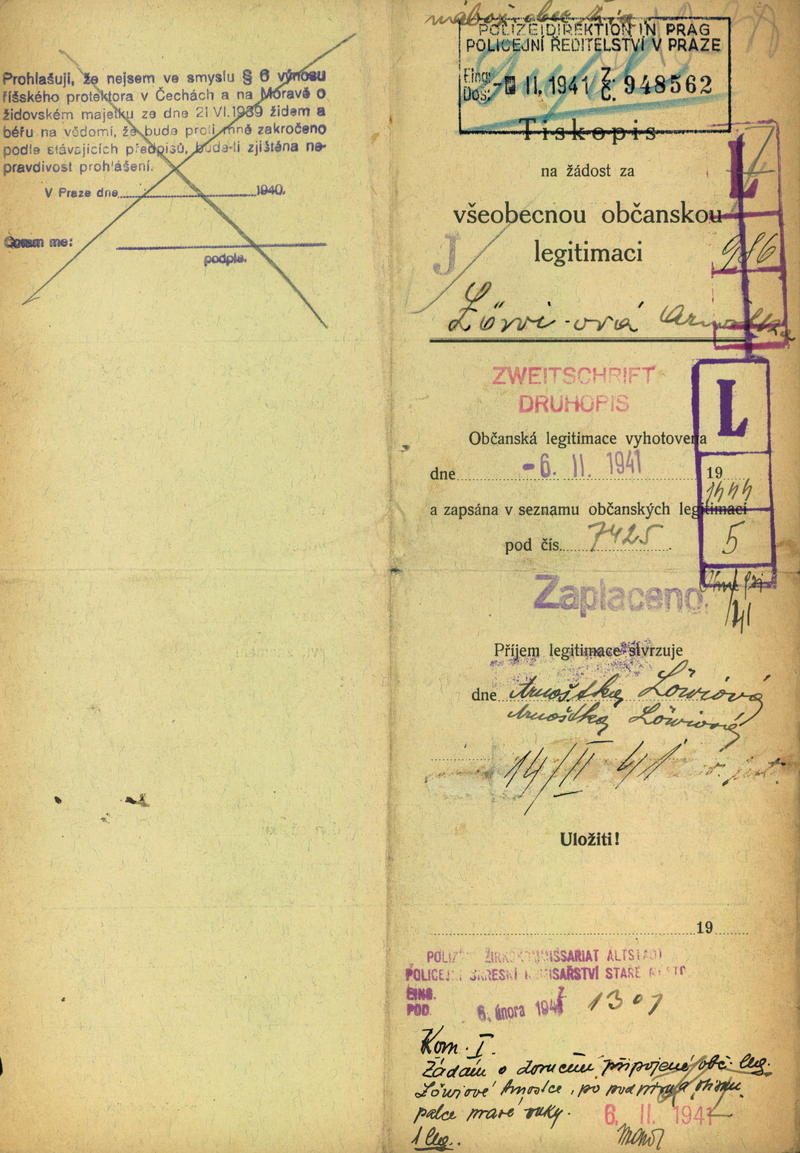 Prohlašuji, že nejsem ve smyslu § 6 výnosu
říšského protektora v Čechách a na Moravě o
židovském majetku ze dne 21 VI. 1939 židem a
běřu na vědomí, že bude proti mně zakročeno
podle stávajících předpisů, bude-li zjištěna ne-
pravdivost prohlášení.
V Praze dne 1940.
podpis.
POLIZEIDIREKTION IN PRAG
POLICEJNÍ ŘEDITELSTVÍ V PRAZE
Eing.
Doš. II. 1941 Z. Č. 948562
Tiskopis
na žádost za
L
všeobecnou občanskou
legitimaci
J
986
Löwi-ová
ZWEITSCHRIFT
DRUHOPIS
L
Občanská legitimace vyhotovena
dne -6. II. 1941 19
a zapsána v seznamu občanských legitimací
pod čís. 7425
5
Zaplaceno.
41
Příjem legitimace stvrzuje
dne Arnoštka Löwiová
Arnoštka Löwiová
14/II 41
Uložiti!
19
KOMMISSARIAT ALTSTADT
POLICEJNÍ OKRESNÍ KOMISAŘSTVÍ STARÉ MĚSTO
EING.
POD. 6. února 1941 1307
Kom. I.
Žádám o doručení připojené obč. leg.
Löwiové Arnoštce, po
palce pravé ruky.
6. II. 1941
1 leg.